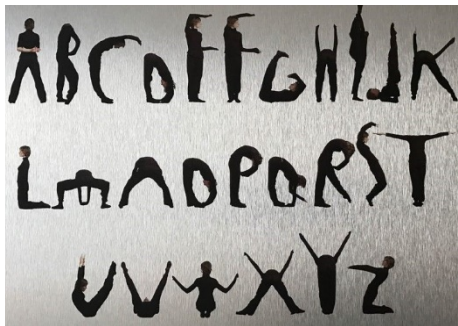 ABCDEFGHIJK
LMNOPQRST
UVWXYZ